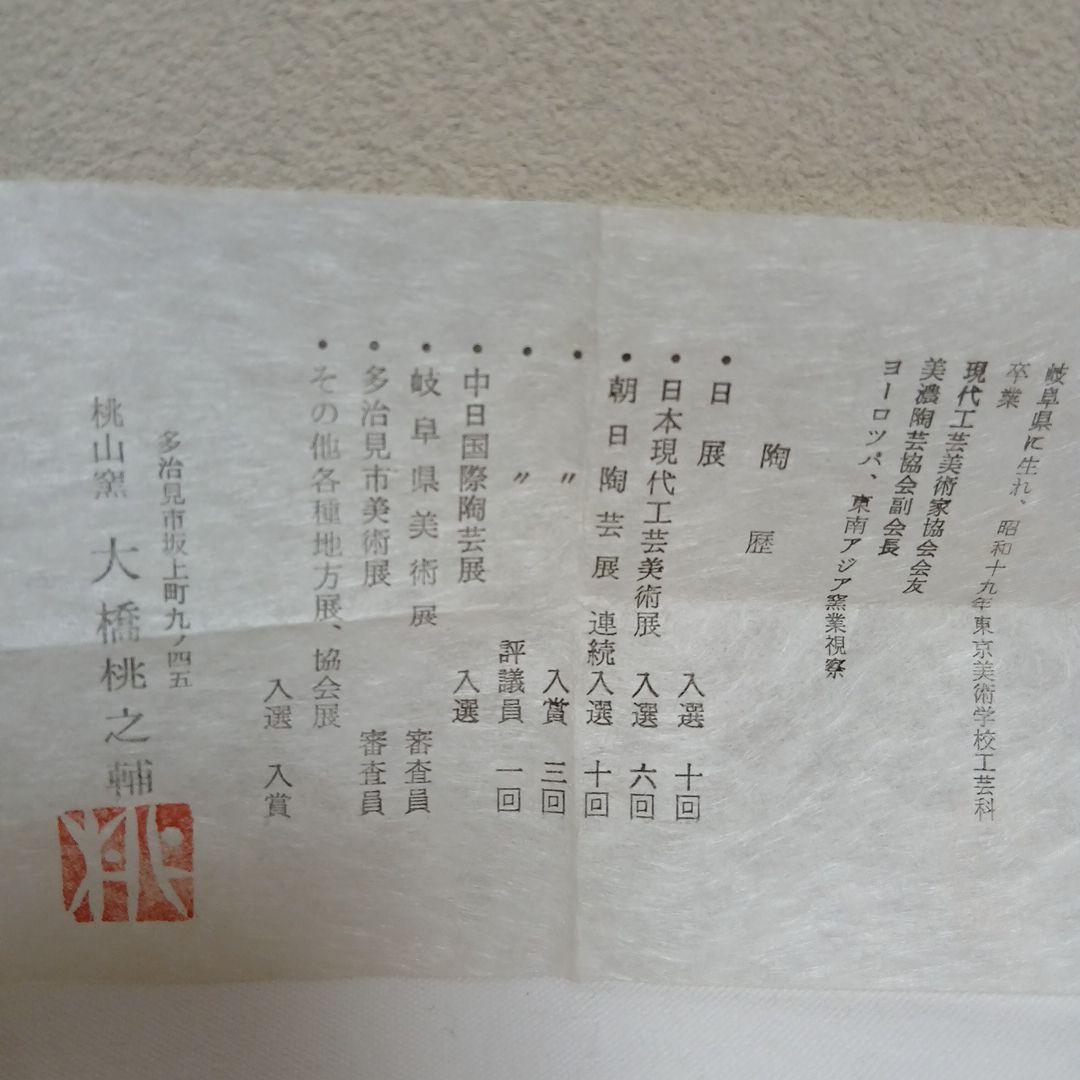 岐阜県に生れ、昭和十九年東京美術学校工芸科
卒業
現代工芸美術家協会会友
美濃陶芸協会副会長
ヨーロツパ、東南アジア窯業視察
陶歴
・日展 入選 十回
・日本現代工芸美術展 入選 六回
・朝日陶芸展 連続入選 十回
・〃 入賞 三回
・〃 評議員 一回
・中日国際陶芸展 入選
・岐阜県美術展 審査員
・多治見市美術展 審査員
・その他各種地方展、協会展 入選 入賞
多治見市坂上町九ノ四五
桃山窯 大橋桃之輔
桃